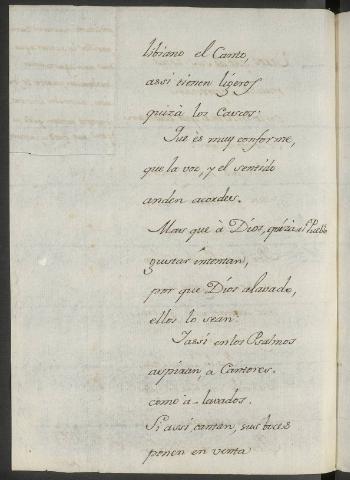 libiano el Canto,
assi tienen ligeros
quizà los Cascos:
Que ès muy conforme,
que la voz, y el sentido
anden acordes.
Mas que à Dios, quizà al Pueblo
gustar intentan,
por que Dios alavado,
ellos lo sean.
I assi en los Psalmos
aspiran, a Cantores.
como a-lavados.
Si assi cantan, sus boces
ponen en venta